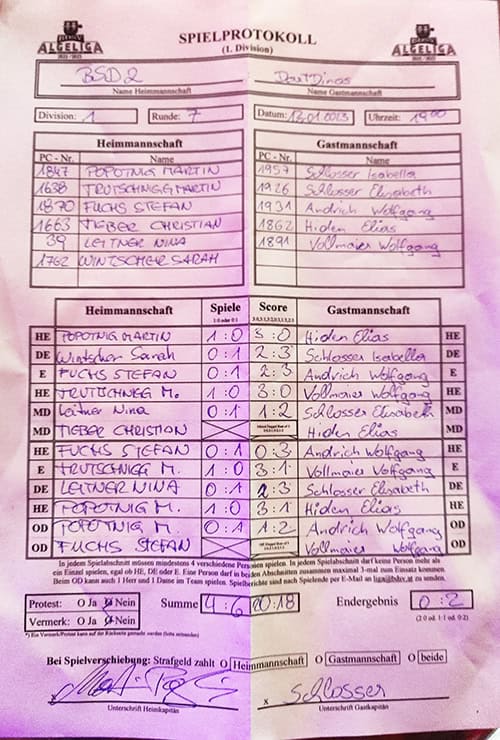 ALGELIGA
2022 / 2023
SPIELPROTOKOLL
(1. Division)
ALGELIGA
2022 / 2023
BSD2
Name Heimmannschaft
DartDinos
Name Gastmannschaft
Division: 1
Runde: 7
Datum: 13.01.0023
Uhrzeit: 19:00
Heimmannschaft
PC - Nr. Name
1847 POPOTNIG MARTIN
1638 TRUTSCHNIGG MARTIN
1870 FUCHS STEFAN
1663 TIEBER CHRISTIAN
39 LEITNER NINA
1762 WINTSCHER SARAH
Gastmannschaft
PC - Nr. Name
1957 Schlosser Isabella
1926 Schlosser Elisabeth
1931 Andrich Wolfgang
1862 Hiden Elias
1891 Vollmaier Wolfgang
Heimmannschaft Spiele Score Gastmannschaft
1:0 oder 0:1
HE POPOTNIG MARTIN 1:0 3:0 Hiden Elias HE
DE Wintscher Sarah 0:1 2:3 Schlosser Isabella DE
E FUCHS STEFAN 0:1 2:3 Andrich Wolfgang E
HE TRUTSCHNIGG M. 1:0 3:0 Vollmaier Wolfgang HE
MD Leitner Nina 0:1 1:2 Schlosser Elisabeth MD
MD TIEBER CHRISTIAN Hiden Elias MD
HE FUCHS STEFAN 0:1 0:3 Andrich Wolfgang HE
E TRUTSCHNIGG M. 1:0 3:1 Vollmaier Wolfgang E
DE LEITNER NINA 0:1 2:3 Schlosser Elisabeth DE
HE POPOTNIG M. 1:0 3:1 Hiden Elias HE
OD POPOTNIG M. 0:1 1:2 Andrich Wolfgang OD
OD FUCHS STEFAN Vollmaier Wolfgang OD
In jedem Spielabschnitt müssen mindestens 4 verschiedene Personen spielen. In jedem Spielabschnitt darf keine Person mehr als
ein Einzel spielen, egal ob HE, DE oder E. Eine Person darf in beiden Abschnitten zusammen maximal 3-mal zum Einsatz kommen.
Beim OD kann auch 1 Herr und 1 Dame im Team spielen. Spielberichte sind nach Spielende per E-Mail an liga@bdsv.at zu senden.
Protest: O Ja O Nein
Summe 4:6 20:18
Endergebnis 0:2
Vermerk: O Ja O Nein
(2:0 od. 1:1 od. 0:2)
*) Ein Vermerk/Protest kann auf der Rückseite gemacht werden (bitte ankreuzen)
Bei Spielverschiebung: Strafgeld zahlt O Heimmannschaft O Gastmannschaft O beide
x
Unterschrift Heimkapitän
x Schlosser
Unterschrift Gastkapitän